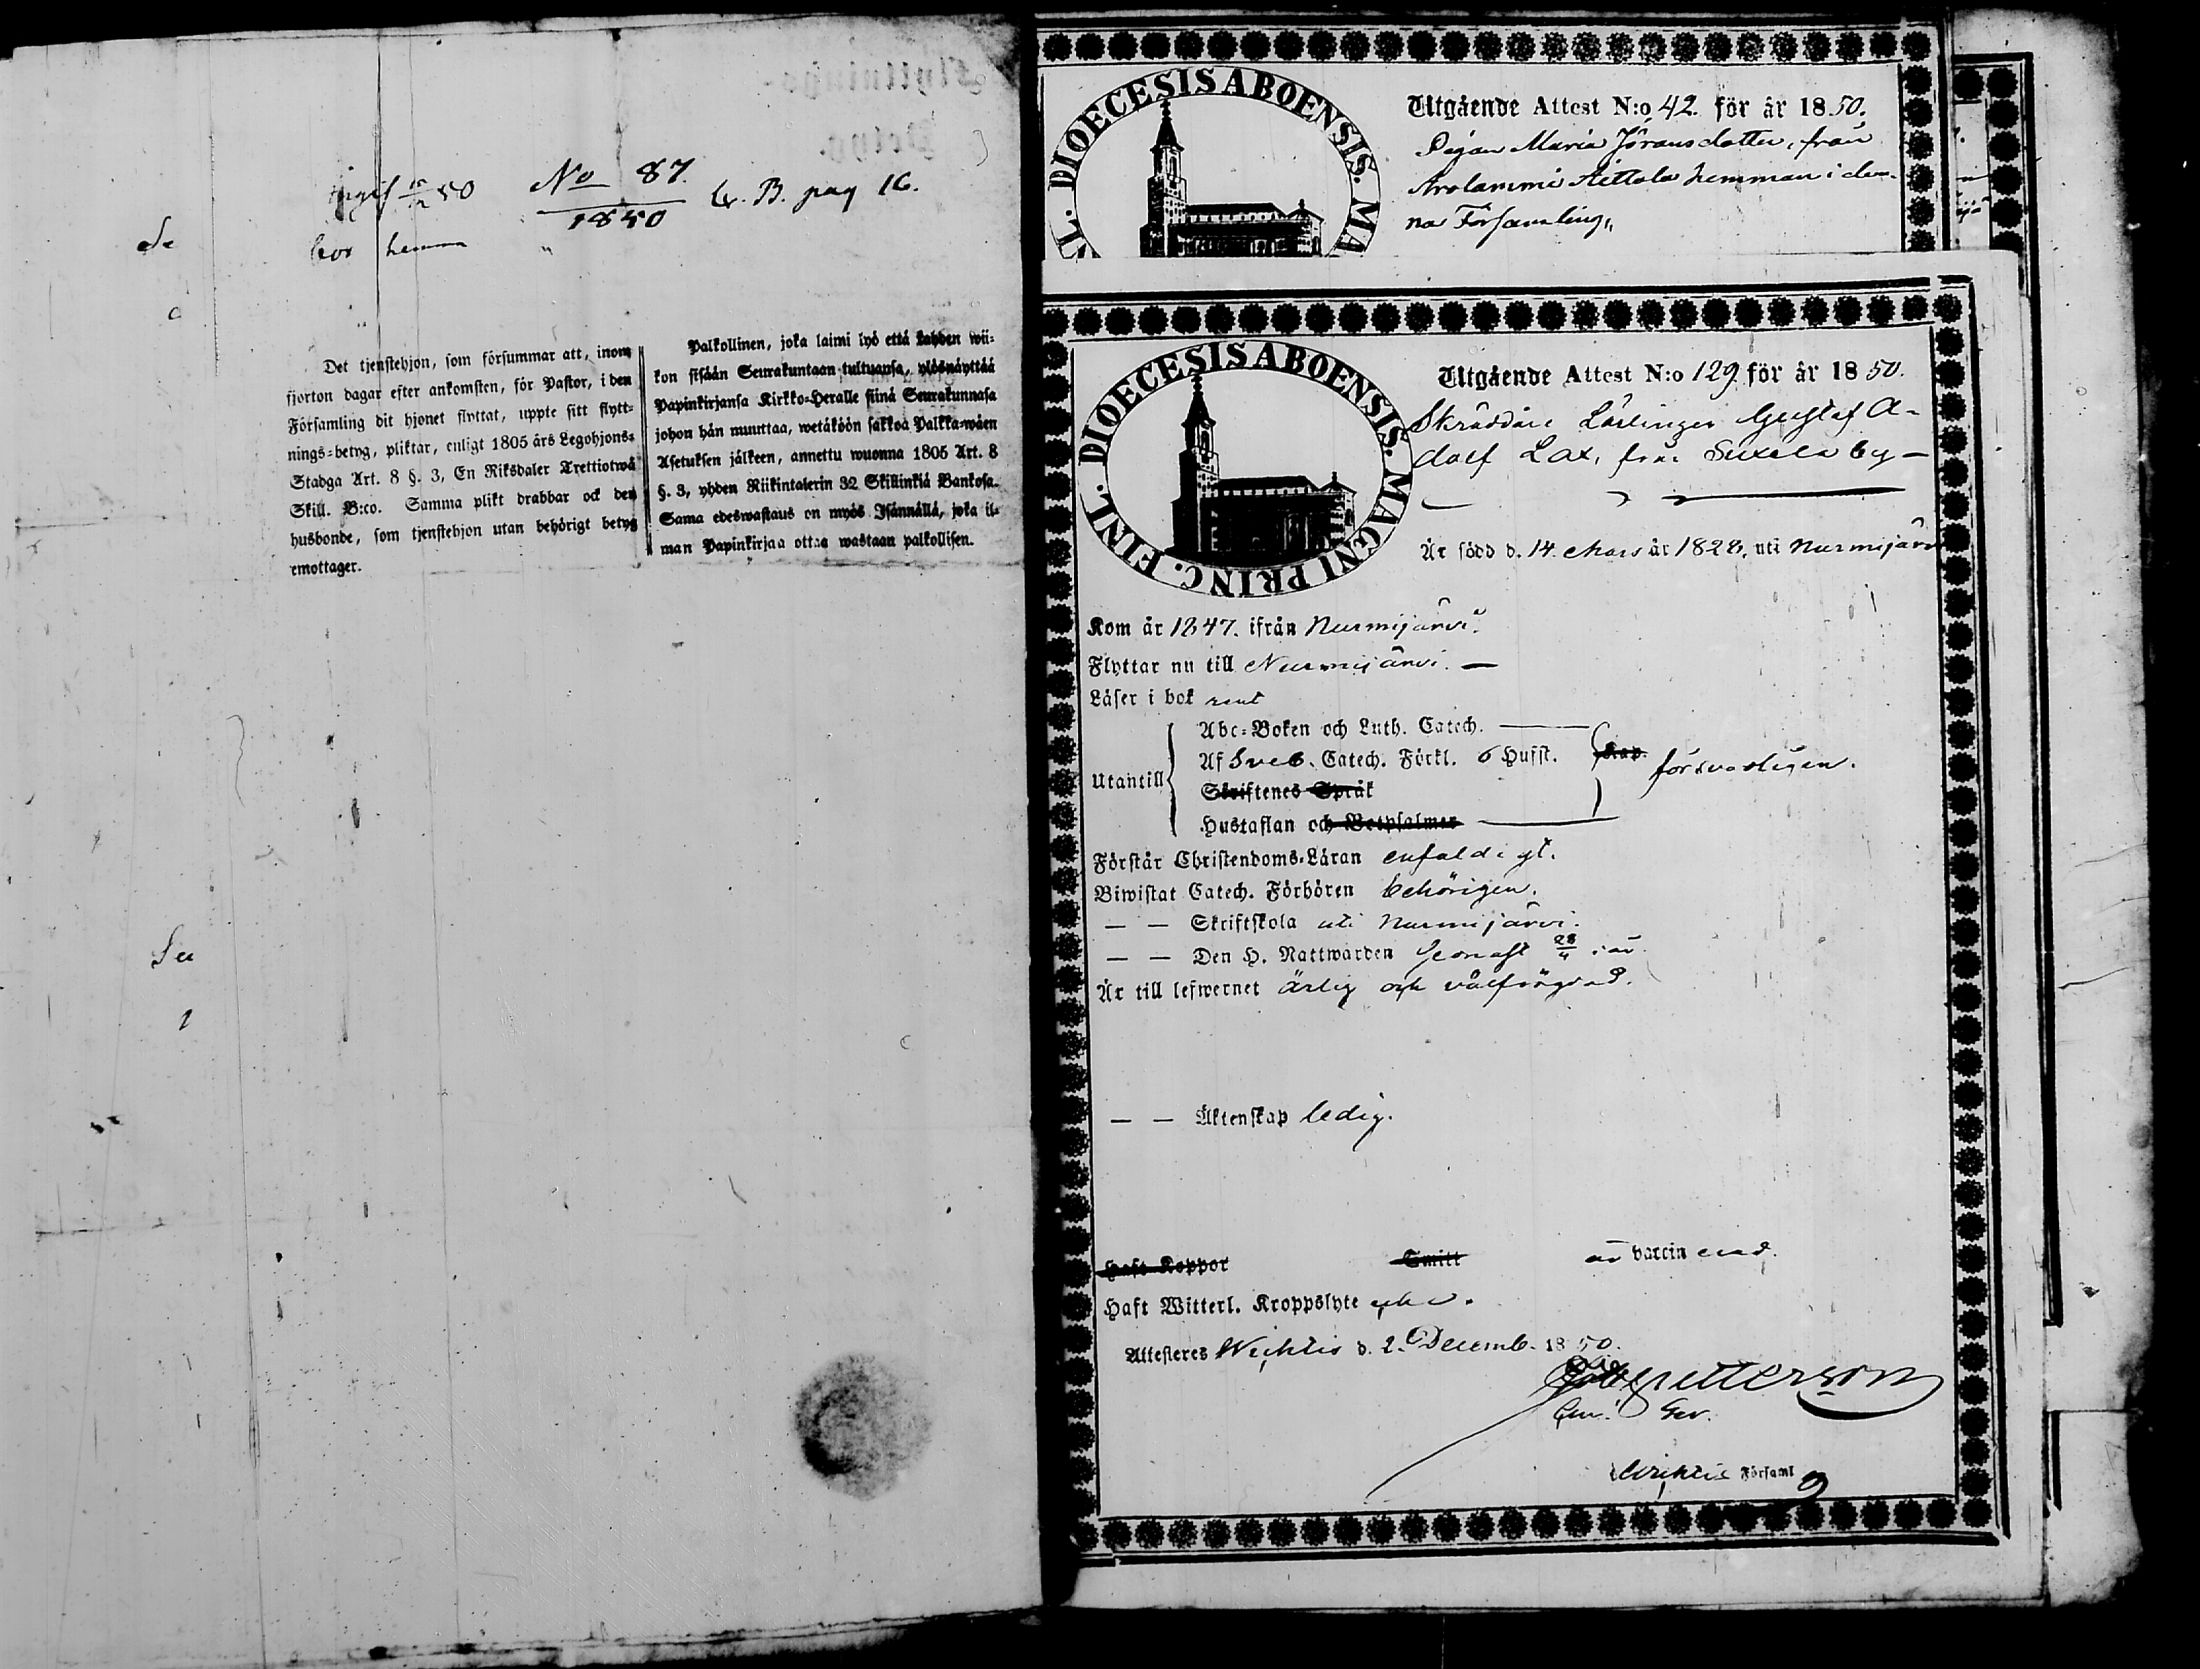 50 No 87. L. B. pag 16.
1850
bor hemma "
Det tjenstehjon, som försummar att, inom
fjorton dagar efter ankomsten, för Pastor, i den
Församling dit hjonet flyttat, uppte sitt flytt-
nings-betyg, pliktar, enligt 1805 års Legohjons-
Stadga Art. 8 §. 3, En Riksdaler Trettiotwå
Skill. B:co. Samma plikt drabbar ock den
husbonde, som tjenstehjon utan behörigt betyg
emottager.
Palkollinen, joka laimi lyö että kahden wii-
kon sisään Seurakuntaan tultuansa, ylösnäyttää
Papinkirjansa Kirkko-Heralle siinä Seurakunnasa
johon hän muuttaa, wetäköön sakkoa Palkka-wäen
Asetuksen jälkeen, annettu wuonna 1805 Art. 8
§. 3, yhden Riikintalerin 32 Skillinkiä Bankosa.
Sama edeswastaus on myös Isännällä, joka il-
man Papinkirjaa ottaa wastaan palkollisen.
DIOECESIS ABOENSIS. MA
Utgående Attest N:o 42. för år 1850.
Pigan Maria Jöransdotter, från
Arolammi Aittola hemman i den-
na Församling,
DIOECESIS ABOENSIS. MAGNI PRINC. FINL.
Utgående Attest N:o 129. för år 1850.
Skräddare Lärlingen Gustaf A-
dolf Lax, från Suxela by —
Är född d. 14. Mars år 1828, uti Nurmijärvi
Kom år 1847. ifrån Nurmijärvi.
Flyttar nu till Nurmijärvi. —
Läser i bok rent
Utantill
Abc-Boken och Luth. Catech.
Af Sveb. Catech. Förkl. 6 Hufst. Kap. försvarligen.
Skriftenes Språk
Hustaflan och Botpsalmer
Förstår Christendoms-Läran enfaldigt.
Biwistat Catech. Förhören behörigen.
— — Skriftskola uti Nurmijärvi.
— — Den H. Nattwarden senast 28/4 i år.
Är till lefwernet ärlig och välfrägdad.
— — Äktenskap ledig.
Haft Koppor Smitt är vaccinerad.
Haft Witterl. Kroppslyte icke.
Attesteres Wichtis d. 2. Decemb. 1850.
Wichtis Församl